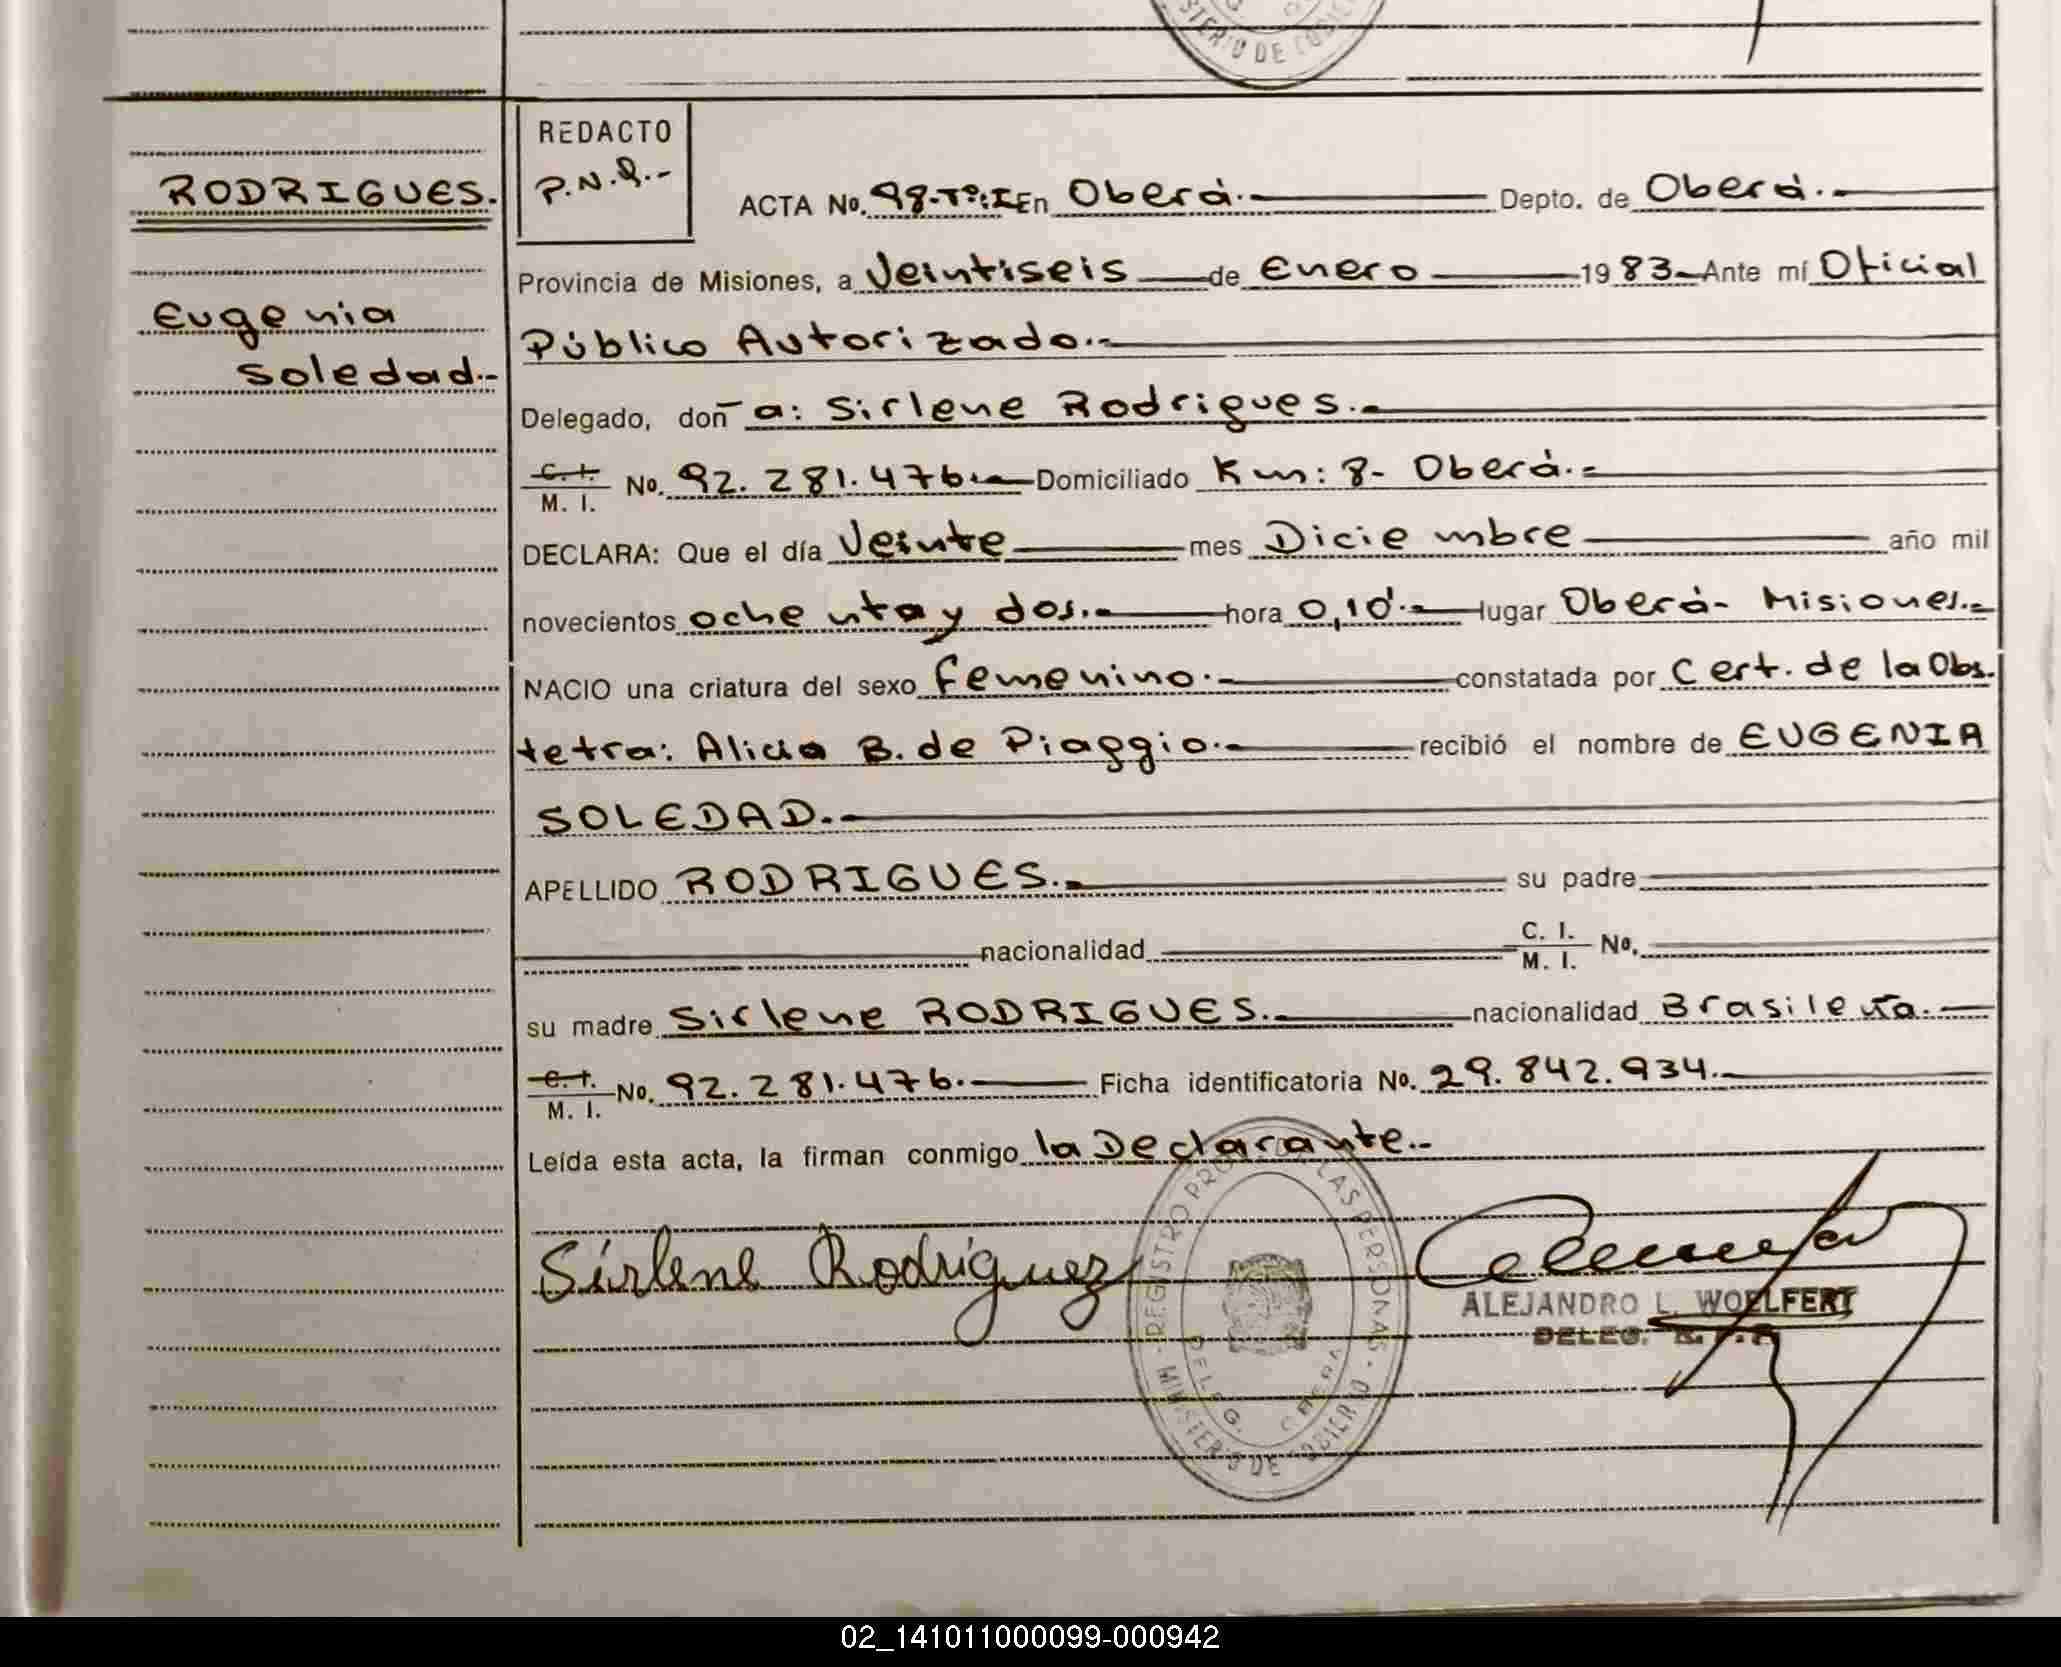 MINISTERIO DE GOBIERNO
RODRIGUES.
Eugenia
Soledad.-
REDACTO
ACTA No. 98-Tº:I En Oberá.- Depto. de Oberá.-
Provincia de Misiones, a Veintiseis de Enero 1983 Ante mí Oficial
Público Autorizado.-
Delegado, doña: Sirlene Rodrigues.-
C. I. / M. I. No. 92.281.476.- Domiciliado Km: 8- Oberá.-
DECLARA: Que el día Veinte mes Diciembre año mil
novecientos ochenta y dos.- hora 0,10'.- lugar Oberá- Misiones.-
NACIO una criatura del sexo femenino.- constatada por Cert. de la Obs.
tetra: Alicia B. de Piaggio.- recibió el nombre de EUGENIA
SOLEDAD.-
APELLIDO RODRIGUES.- su padre
nacionalidad C. I. / M. I. No.
su madre Sirlene RODRIGUES.- nacionalidad Brasileña.-
C. I. / M. I. No. 92.281.476.- Ficha identificatoria No. 29.842.934.-
Leída esta acta, la firman conmigo la Declarante.-
Sirlene Rodriguez
ALEJANDRO L. WOELFERT
DELEG.
REGISTRO LAS PERSONAS
DELEG. OBERA
MINISTERIO DE GOBIERNO
02_141011000099-000942